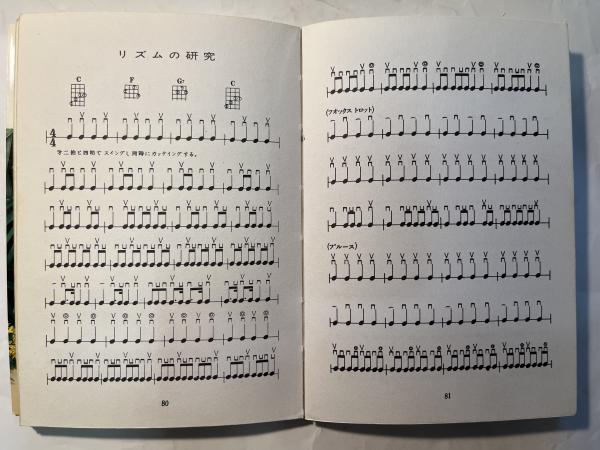 リズムの研究
C F G7 C
4/4
第二拍と四拍でスイングし同時にカッテイングする。
80
(フオックス トロット)
(ブルース)
81